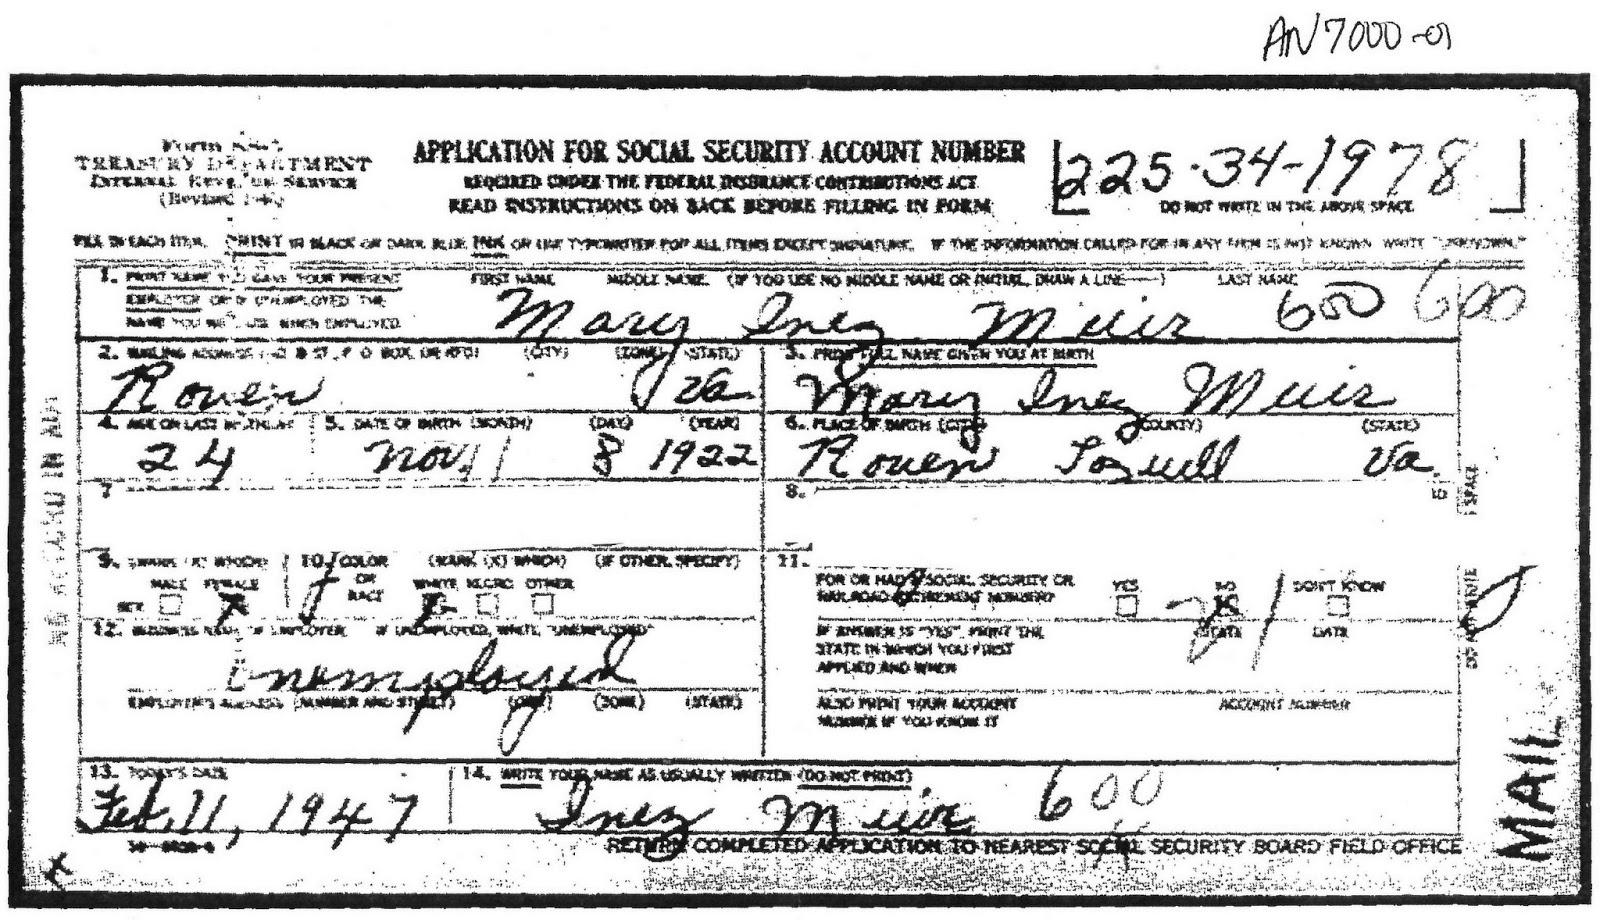 AN7000-01
Form SS-5
TREASURY DEPARTMENT
INTERNAL REVENUE SERVICE
(Revised
APPLICATION FOR SOCIAL SECURITY ACCOUNT NUMBER
REQUIRED UNDER THE FEDERAL INSURANCE CONTRIBUTIONS ACT
READ INSTRUCTIONS ON BACK BEFORE FILLING IN FORM
225-34-1978
DO NOT WRITE IN THE ABOVE SPACE
FILL IN EACH ITEM. PRINT IN BLACK OR DARK BLUE INK OR USE TYPEWRITER FOR ALL ITEMS EXCEPT SIGNATURE. IF THE INFORMATION CALLED FOR IN ANY ITEM IS NOT KNOWN WRITE "UNKNOWN."
1. PRINT NAME YOU GAVE YOUR PRESENT
EMPLOYER OR IF UNEMPLOYED THE
NAME YOU WILL USE WHEN EMPLOYED.
FIRST NAME MIDDLE NAME. (IF YOU USE NO MIDDLE NAME OR INITIAL, DRAW A LINE——) LAST NAME
Mary Inez Muir 600 600
2. MAILING ADDRESS (NO. & ST., P. O. BOX, OR RFD) (CITY) (ZONE) (STATE)
Rouen Va
3. PRINT FULL NAME GIVEN YOU AT BIRTH
Mary Inez Muir
4. AGE ON LAST BIRTHDAY
24
5. DATE OF BIRTH (MONTH) (DAY) (YEAR)
Nov 8 1922
6. PLACE OF BIRTH (CITY) (COUNTY) (STATE)
Rouen Va.
7
8.
9. (MARK (X) WHICH)
SEX MALE FEMALE
X
10. COLOR OR RACE (MARK (X) WHICH) (IF OTHER, SPECIFY)
WHITE NEGRO OTHER
X
11.
FOR OR HAD A SOCIAL SECURITY OR
RAILROAD RETIREMENT NUMBER?
YES NO DON'T KNOW
X
IF ANSWER IS "YES", PRINT THE
STATE IN WHICH YOU FIRST
APPLIED AND WHEN
STATE DATE
ALSO PRINT YOUR ACCOUNT
NUMBER IF YOU KNOW IT
ACCOUNT NUMBER
12. BUSINESS NAME OF EMPLOYER. IF UNEMPLOYED, WRITE "UNEMPLOYED"
Unemployed
EMPLOYER'S ADDRESS (NUMBER AND STREET) (CITY) (ZONE) (STATE)
13. TODAY'S DATE
Feb, 11, 1947
14. WRITE YOUR NAME AS USUALLY WRITTEN (DO NOT PRINT)
Inez Muir 600
RETURN COMPLETED APPLICATION TO NEAREST SOCIAL SECURITY BOARD FIELD OFFICE
NO RECORD IN
SPACE
MAIL